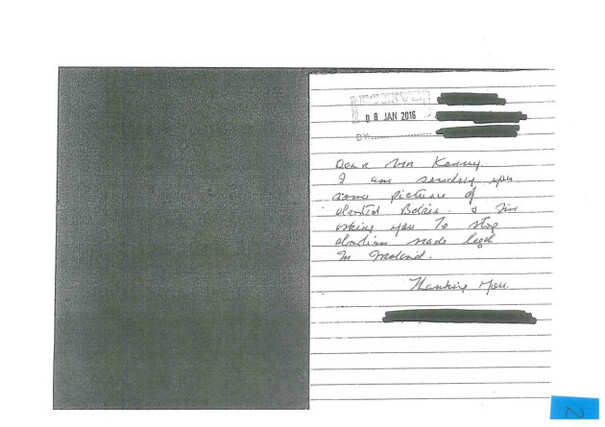 RECEIVED
08 JAN 2016
BY:
Dear Mr Kenny.
I am sending you
some picture of
aborted Babies. & I'm
asking you To stop
abortion made legal
In Ireland.
Thanking you.
2